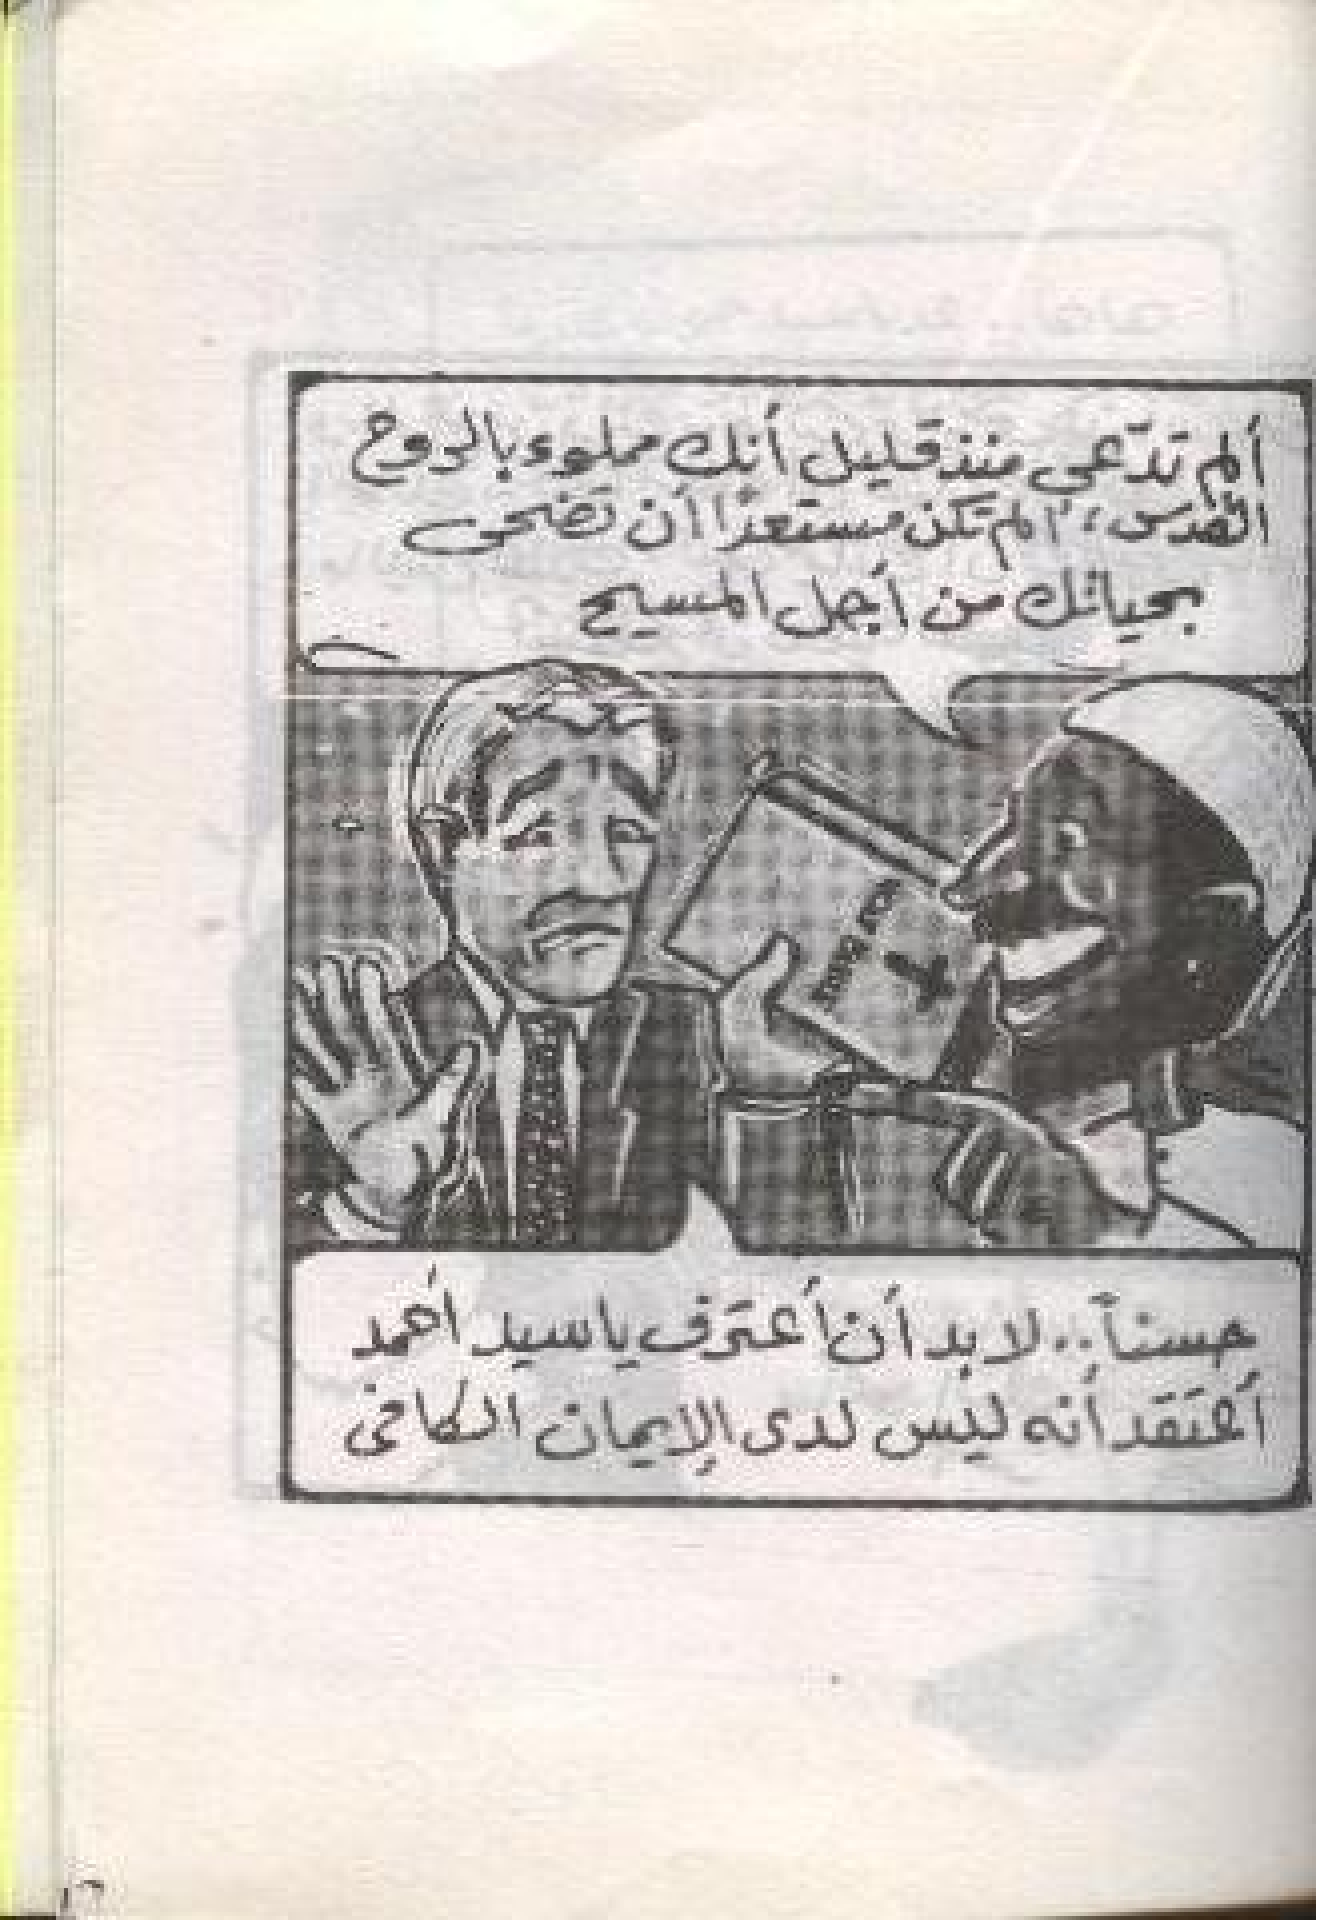 ألم تدّعى منذ قليل أنك مملوء بالروح
القدس، ألم تكن مستعدًا أن تضحى
بحياتك من أجل المسيح
HOLY BIBLE
حسناً.. لابد أن أعترف ياسيد أحمد
أعتقد أنه ليس لدى الإيمان الكافى